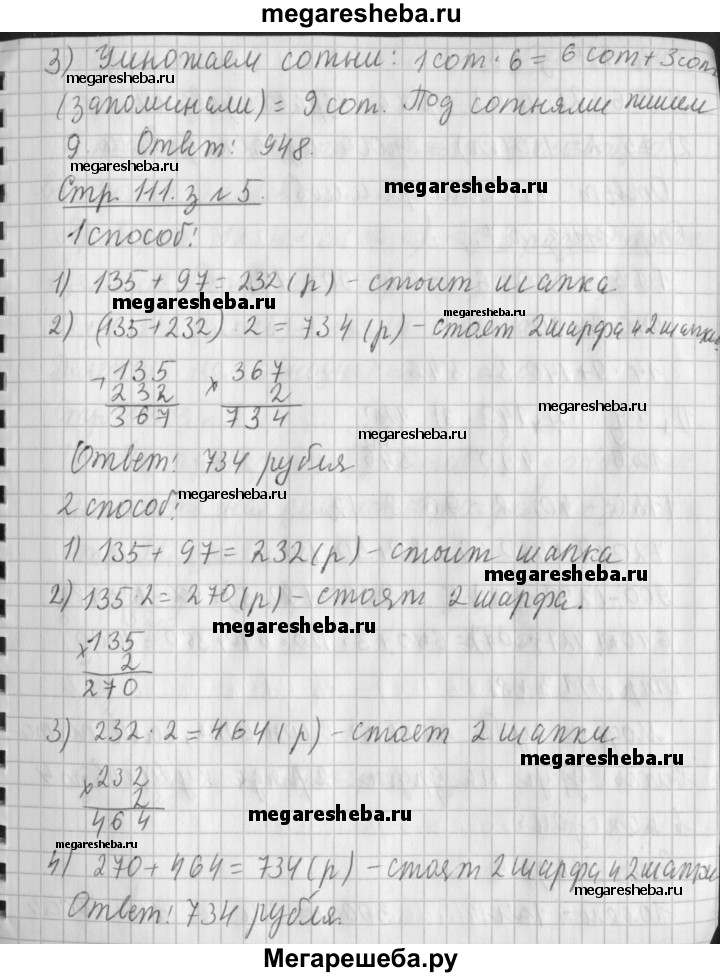 megaresheba.ru
3) Умножаем сотни: 1 сот · 6 = 6 сот + 3 сот
megaresheba.ru
(запоминали) = 9 сот. Под сотнями пишем
9. Ответ: 948.
megaresheba.ru
Стр. 111. з №5.
megaresheba.ru
1 способ:
1) 135 + 97 = 232 (р) - стоит шапка.
megaresheba.ru
megaresheba.ru
2) (135 + 232) · 2 = 734 (р) - стоят 2 шарфа и 2 шапки.
+ 135 × 367
232 2
367 734
megaresheba.ru
megaresheba.ru
Ответ: 734 рубля
megaresheba.ru
2 способ:
1) 135 + 97 = 232 (р) - стоит шапка
megaresheba.ru
2) 135 · 2 = 270 (р) - стоят 2 шарфа.
megaresheba.ru
× 135
2
270
3) 232 · 2 = 464 (р) - стоет 2 шапки.
megaresheba.ru
× 232
2
464
megaresheba.ru
megaresheba.ru
4) 270 + 464 = 734 (р) - стоят 2 шарфа и 2 шапки
megaresheba.ru
Ответ: 734 рубля.
Мегарешеба.ру